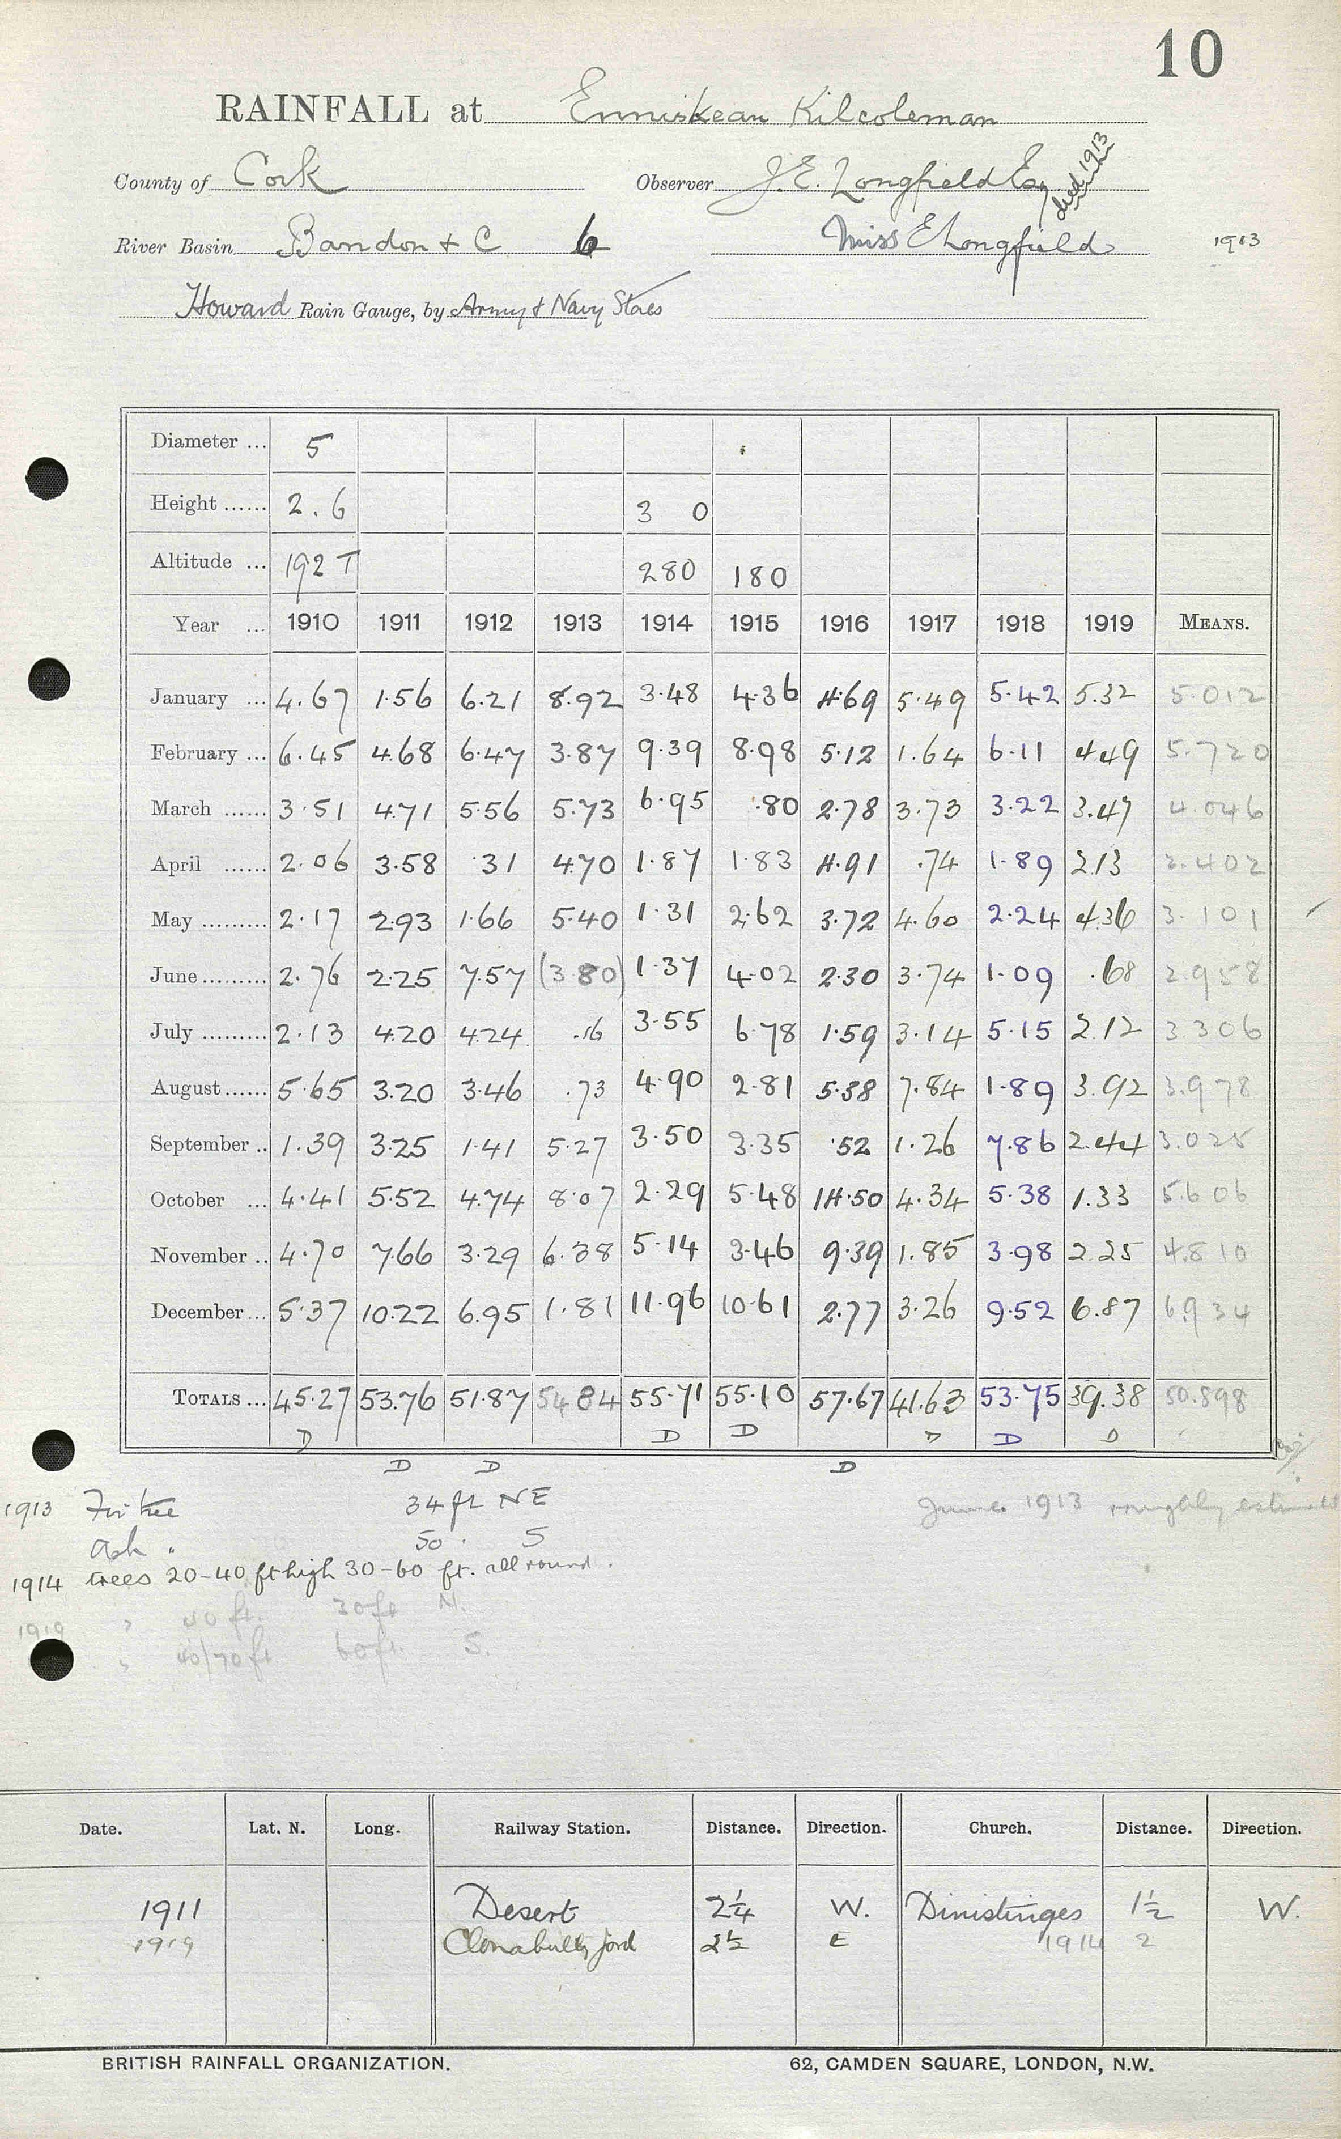 10
RAINFALL at Enniskean Kilcoleman
County of Cork Observer J. E. Longfield Esq died 1913
River Basin Bandon & C 6 Miss E Longfield 1913
Howard Rain Gauge, by Army & Navy Stores
Diameter ... 5
Height ...... 2.6 3 0
Altitude ... 192 T 280 180
Year ... 1910 1911 1912 1913 1914 1915 1916 1917 1918 1919 MEANS.
January ... 4.67 1.56 6.21 8.92 3.48 4.36 4.69 5.49 5.42 5.32 5.012
February ... 6.45 4.68 6.47 3.87 9.39 8.98 5.12 1.64 6.11 4.49 5.720
March ...... 3.51 4.71 5.56 5.73 6.95 .80 2.78 3.73 3.22 3.47 4.046
April ...... 2.06 3.58 .31 4.70 1.87 1.83 4.91 .74 1.89 2.13 2.402
May ......... 2.17 2.93 1.66 5.40 1.31 2.62 3.72 4.60 2.24 4.36 3.101
June ......... 2.76 2.25 7.57 (3.80) 1.37 4.02 2.30 3.74 1.09 .68 2.958
July ......... 2.13 4.20 4.24 .16 3.55 6.78 1.59 3.14 5.15 2.12 3.306
August ...... 5.65 3.20 3.46 .73 4.90 2.81 5.38 7.84 1.89 3.92 3.978
September .. 1.39 3.25 1.41 5.27 3.50 3.35 .52 1.26 7.86 2.44 3.025
October ... 4.41 5.52 4.74 8.07 2.29 5.48 14.50 4.34 5.38 1.33 5.606
November .. 4.70 7.66 3.29 6.38 5.14 3.46 9.39 1.85 3.98 2.25 4.810
December ... 5.37 10.22 6.95 1.81 11.96 10.61 2.77 3.26 9.52 6.87 6.934
TOTALS ... 45.27 53.76 51.87 54.84 55.71 55.10 57.67 41.63 53.75 39.38 50.898
D D D D D D
D D D
1913 Fir tree 34 ft NE
June 1913 roughly
Ash " 50 " S
1914 trees 20-40 ft high 30-60 ft. all round.
1919 " 40 ft. 30 ft N.
" 40/70 ft 60 ft. S.
Date. Lat. N. Long. Railway Station. Distance. Direction. Church. Distance. Direction.
1911 Desert 2¼ W. Dinistinges 1½ W.
1919 2½ E 1914 2
BRITISH RAINFALL ORGANIZATION. 62, CAMDEN SQUARE, LONDON, N.W.